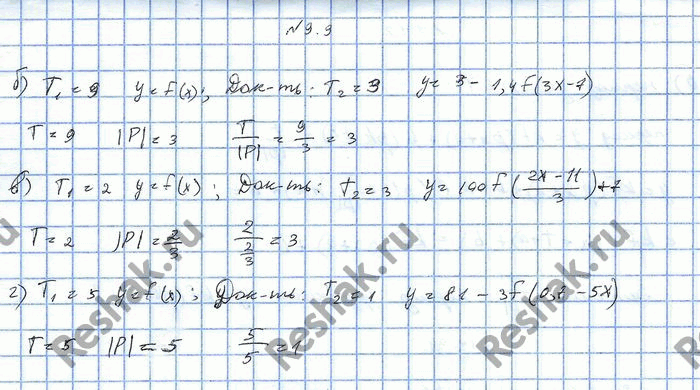 №9.9
б) T₁ = 9 y = f(x); Док-ть: T₂ = 3 y = 3 - 1,4f(3x-7)
T = 9 |P| = 3 T/|P| = 9/3 = 3
в) T₁ = 2 y = f(x); Док-ть: T₂ = 3 y = 100f((2x-11)/3)+7
T = 2 |P| = 2/3 2/(2/3) = 3
г) T₁ = 5 y = f(x); Док-ть: T₂ = 1 y = 81 - 3f(0,7-5x)
T = 5 |P| = 5 5/5 = 1
Reshak.ru
Reshak.ru
Reshak.ru